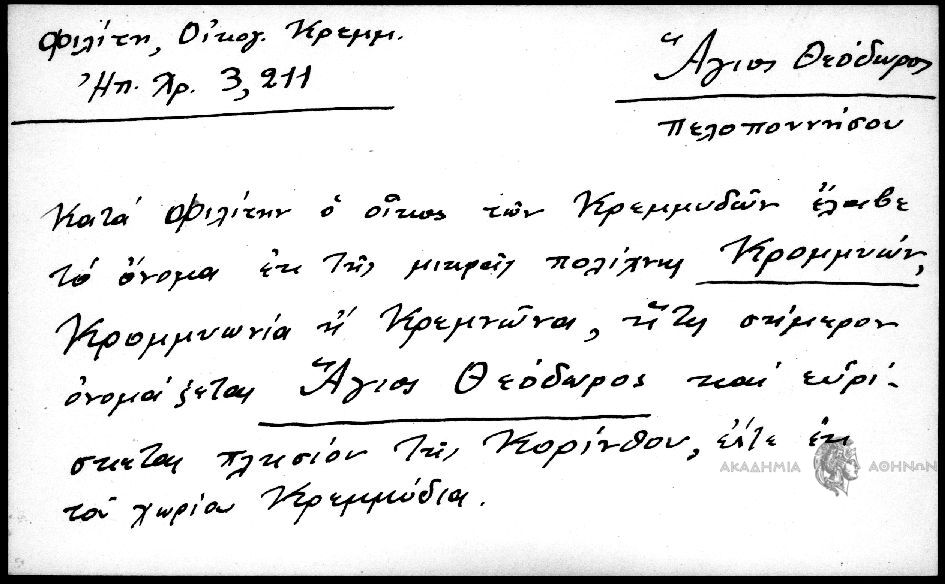 Φιλίτη, Οἰκογ. Κρεμμ.
Ἠπ. Χρ. 3, 211
Ἅγιος Θεόδωρος
Πελοποννήσου
Κατά Φιλίτην ὁ οἶκος τῶν Κρεμμυδῶν ἔλαβε
τό ὄνομα ἐκ τῆς μικρᾶς πολίχνης Κρομμυών,
Κρομμυωνία ἤ Κρεμνῶνα, ἥτις σήμερον
ὀνομάζεται Ἅγιος Θεόδωρος καί εὑρί-
σκεται πλησίον τῆς Κορίνθου, εἴτε ἐκ
τοῦ χωρίου Κρεμμύδια.
ΑΚΑΔΗΜΙΑ ΑΘΗΝΩΝ